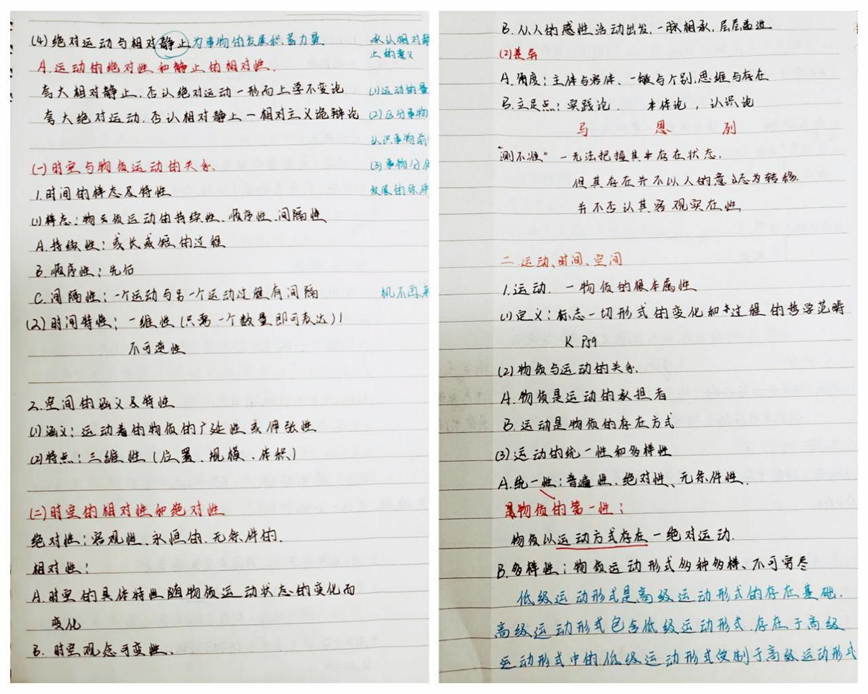 (4)绝对运动与相对静止为事物的发展积蓄力量
承认相对静
止的意义
A.运动的绝对性和静止的相对性.
夸大相对静止.否认绝对运动一形而上学不变论
(1)运动的量
夸大绝对运动.否认相对静止一相对主义诡辩论
(2)区分事物
认识事物前
(一)时空与物质运动的关系
(3)事物分化
1.时间的特点及特性
发展的条件
(1)特点:物质运动的持续性、顺序性、间隔性
A.持续性:或长或短的过程
B.顺序性:先后
C.间隔性:一个运动与另一个运动过程有间隔
机不再来
(2)时间特性:一维性(只需一个数量即可表达)
不可逆性
2.空间的涵义及特性
(1)涵义:运动着的物质的广延性或伸张性
(2)特点:三维性(位置、规模、体积)
(二)时空的相对性和绝对性
绝对性:客观性、永恒的、无条件的.
相对性:
A.时空的具体特性随物质运动状态的变化而
变化
B.时空观念可变性.
B.从人的感性活动出发,一脉相承,层层递进
(2)差异
A.角度:主体与客体、一般与个别,思维与存在
B.立足点:实践论、本体论,认识论
马 恩 列
"测不准"一无法把握其存在状态.
但其存在并不以人的意志为转移.
并不否认其客观实在性
二.运动、时间、空间
1.运动.一物质的根本属性
(1)定义:标志一切形式的变化和过程的哲学范畴
(2)物质与运动的关系
A.物质是运动的承担者
B.运动是物质的存在方式
(3)运动的统一性和多样性
A.统一性:普遍性、绝对性、无条件性.
是物质的第一性:
物质以运动方式存在一绝对运动.
B.多样性:物质运动形式多种多样、不可穷尽
低级运动形式是高级运动形式的存在基础.
高级运动形式包含低级运动形式.存在于高级
运动形式中的低级运动形式受制于高级运动形式